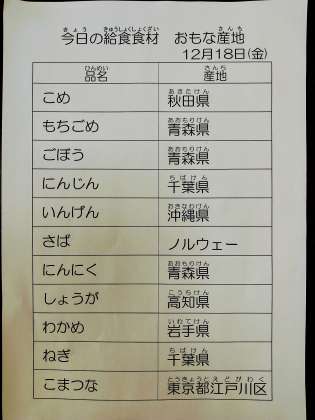 今日の給食食材 おもな産地
12月18日(金)
品名 産地
こめ 秋田県
もちごめ 青森県
ごぼう 青森県
にんじん 千葉県
いんげん 沖縄県
さば ノルウェー
にんにく 青森県
しょうが 高知県
わかめ 岩手県
ねぎ 千葉県
こまつな 東京都江戸川区